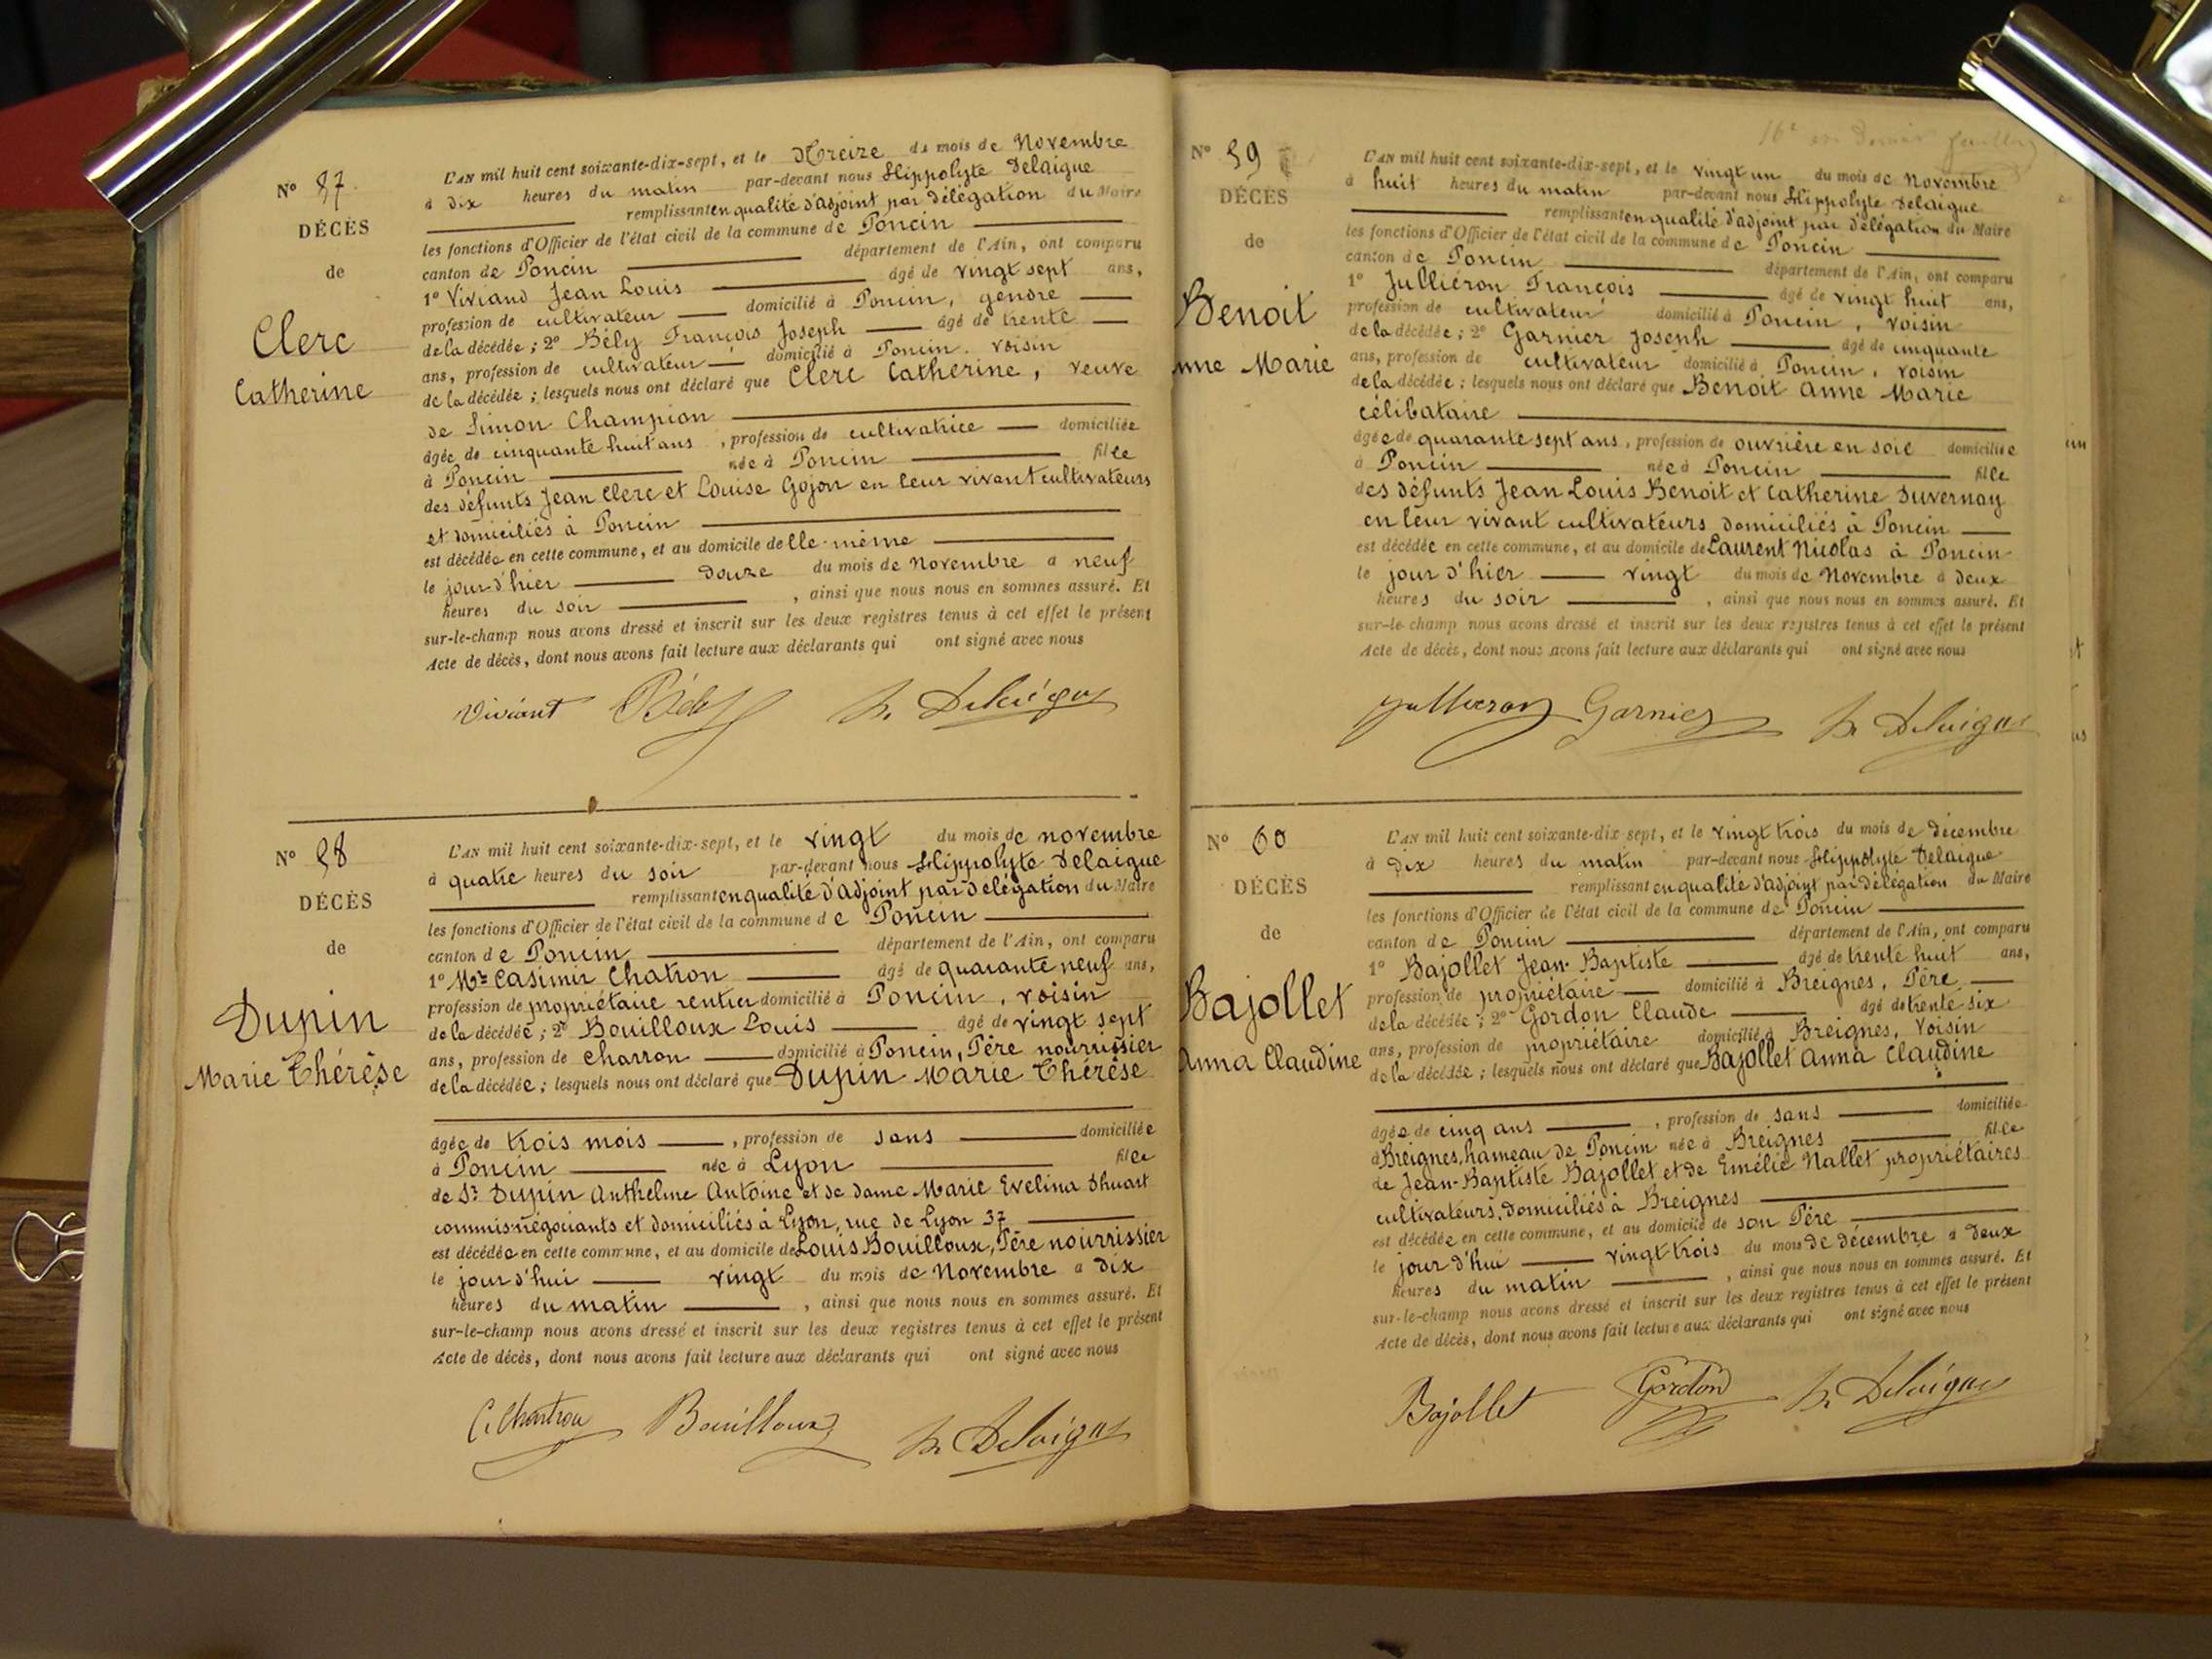 N° 57.
DÉCÈS
de
Clerc
Catherine
L'AN mil huit cent soixante-dix-sept, et le Treize du mois de Novembre
à dix heures du matin par-devant nous Hippolyte Delaigue
remplissant en qualité d'adjoint par délégation du Maire
les fonctions d'Officier de l'état civil de la commune de Poncin
canton de Poncin département de l'Ain, ont comparu
1° Viviand Jean Louis âgé de vingt sept ans,
profession de cultivateur domicilié à Poncin, gendre
de la décédée ; 2° Bély François Joseph âgé de trente
ans, profession de cultivateur domicilié à Poncin. voisin
de la décédée ; lesquels nous ont déclaré que Clerc Catherine, veuve
de Simon Champion
âgée de cinquante huit ans, profession de cultivatrice domiciliée
à Poncin née à Poncin fille
des défunts Jean Clerc et Louise Gojon en leur vivant cultivateurs
et domiciliés à Poncin
est décédée en cette commune, et au domicile delle-même
le jour d'hier douze du mois de Novembre à neuf
heures du soir, ainsi que nous nous en sommes assuré. Et
sur-le-champ nous avons dressé et inscrit sur les deux registres tenus à cet effet le présent
Acte de décès, dont nous avons fait lecture aux déclarants qui ont signé avec nous
Viviant Bély h. Delaigue
N° 58
DÉCÈS
de
Dupin
Marie Thérèse
L'AN mil huit cent soixante-dix-sept, et le vingt du mois de novembre
à quatre heures du soir par-devant nous Hippolyte Delaigue
remplissant en qualité d'adjoint par délégation du Maire
les fonctions d'Officier de l'état civil de la commune de Poncin
canton de Poncin département de l'Ain, ont comparu
1° Mr Casimir Chatron âgé de quarante neuf ans,
profession de propriétaire rentier domicilié à Poncin, voisin
de la décédée ; 2° Bouilloux Louis âgé de vingt sept
ans, profession de charron domicilié à Poncin, Père nourrissier
de la décédée ; lesquels nous ont déclaré que Dupin Marie Thérèse
âgée de trois mois, profession de sans domiciliée
à Poncin née à Lyon fille
de Sr Dupin Anthelme Antoine et de dame Marie Evelina
commis négociants et domiciliés à Lyon, rue de Lyon 37
est décédée en cette commune, et au domicile de Louis Bouilloux, Père nourrissier
le jour d'hui vingt du mois de Novembre à dix
heures du matin, ainsi que nous nous en sommes assuré. Et
sur-le-champ nous avons dressé et inscrit sur les deux registres tenus à cet effet le présent
Acte de décès, dont nous avons fait lecture aux déclarants qui ont signé avec nous
C. Chatron Bouilloux h. Delaigue
N° 59
DÉCÈS
de
Benoit
nne Marie
L'AN mil huit cent soixante-dix-sept, et le vingt un du mois de Novembre
à huit heures du matin par-devant nous Hippolyte Delaigue
remplissant en qualité d'adjoint par délégation du Maire
les fonctions d'Officier de l'état civil de la commune de Poncin
canton de Poncin département de l'Ain, ont comparu
1° Julliéron François âgé de vingt huit ans,
profession de cultivateur domicilié à Poncin, voisin
de la décédée ; 2° Garnier Joseph âgé de cinquante
ans, profession de cultivateur domicilié à Poncin, voisin
de la décédée ; lesquels nous ont déclaré que Benoit Anne Marie
célibataire
âgée de quarante sept ans, profession de ouvrière en soie domiciliée
à Poncin née à Poncin fille
des défunts Jean Louis Benoit et Catherine Duvernay
en leur vivant cultivateurs domiciliés à Poncin
est décédée en cette commune, et au domicile de Laurent Nicolas à Poncin
le jour d'hier vingt du mois de Novembre à deux
heures du soir, ainsi que nous nous en sommes assuré. Et
sur-le-champ nous avons dressé et inscrit sur les deux registres tenus à cet effet le présent
Acte de décès, dont nous avons fait lecture aux déclarants qui ont signé avec nous
Jullieron Garnier h. Delaigue
N° 60
DÉCÈS
de
Bajollet
Anna Claudine
L'AN mil huit cent soixante-dix-sept, et le vingt trois du mois de décembre
à dix heures du matin par-devant nous Hippolyte Delaigue
remplissant en qualité d'adjoint par délégation du Maire
les fonctions d'Officier de l'état civil de la commune de Poncin
canton de Poncin département de l'Ain, ont comparu
1° Bajollet Jean-Baptiste âgé de trente huit ans,
profession de propriétaire domicilié à Breignes, Père
de la décédée ; 2° Gordon Claude âgé de trente six
ans, profession de propriétaire domicilié à Breignes, Voisin
de la décédée ; lesquels nous ont déclaré que Bajollet Anna Claudine
âgée de cinq ans, profession de sans domiciliée
à Breignes, hameau de Poncin née à Breignes fille
de Jean-Baptiste Bajollet et de Emélie Nallet propriétaires
cultivateurs, domiciliés à Breignes
est décédée en cette commune, et au domicile de son Père
le jour d'hui vingt trois du mois de décembre à deux
heures du matin, ainsi que nous nous en sommes assuré. Et
sur-le-champ nous avons dressé et inscrit sur les deux registres tenus à cet effet le présent
Acte de décès, dont nous avons fait lecture aux déclarants qui ont signé avec nous
Bajollet Gordon h. Delaigue